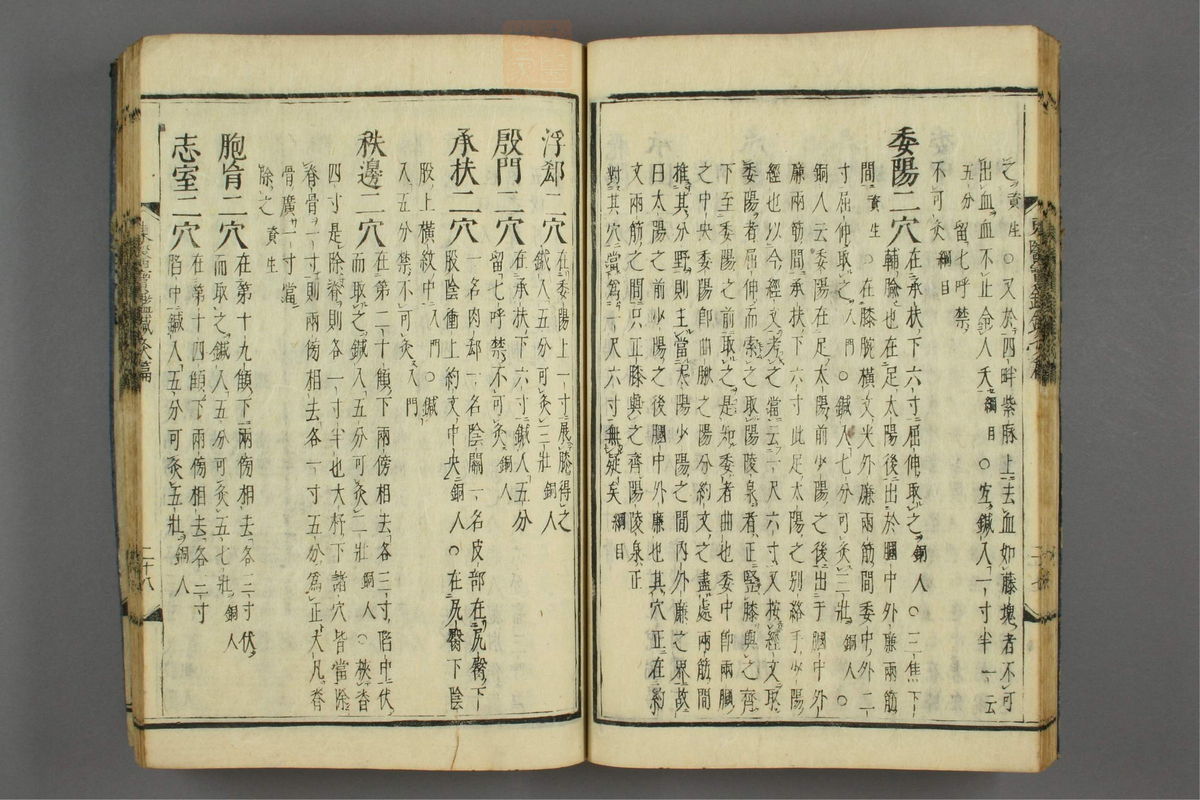 之資生○又於四畔紫脉上去血如藤塊者不可
出血血不止令人夭綱目○宜鍼入一寸半一云
五分留七呼禁
不可灸綱目
委陽二穴在承扶下六寸屈伸取之銅人○三焦下
輔腧也在足太陽後出於膕中外廉兩筋
間資生○在膝腕橫文尖外廉兩筋間委中外二
寸屈伸取之入門○鍼入七分可灸三壯銅人○
銅人云委陽在足太陽前少陽之後出于膕中外
廉兩筋間承扶下六寸此足太陽之別絡手少陽
經也以今經文考之當云一尺六寸又按經文取
委陽者屈伸而索之取陽陵泉者正竪膝與之齊
下至委陽之前取之是知委者曲也委中卽兩膕
之中央委陽卽曲䐐之陽分約文之盡處兩筋間
推其分野則主當太陽少陽之間內外廉之界故
曰太陽之前少陽之後膕中外廉也其穴正在約
文兩筋之間只正膝與之齊陽陵泉正
對其穴當爲一尺六寸無疑矣綱目
浮郄二穴在委陽上一寸展膝得之
鍼入五分可灸三壯銅人
殷門二穴在承扶下六寸鍼入五分
留七呼禁不可灸銅人
承扶二穴一名肉郄一名陰關一名皮部在尻臀下
股陰衝上約文中央銅人○在尻臀下陰
股上橫紋中入門○鍼
入五分禁不可灸入門
秩邊二穴在第二十顀下兩傍相去各三寸陷中伏
而取之鍼入五分可灸三壯銅人○挾脊
四寸是除脊則各一寸半也大杼下諸穴皆當除
脊骨一寸則兩傍相去各一寸五分爲正大凡脊
骨廣一寸當
除之資生
胞肓二穴在第十九顀下兩傍相去各三寸伏
而取之鍼入五分可灸五七壯銅人
志室二穴在第十四顀下兩傍相去各三寸
陷中鍼入五分可灸五壯銅人
二十八